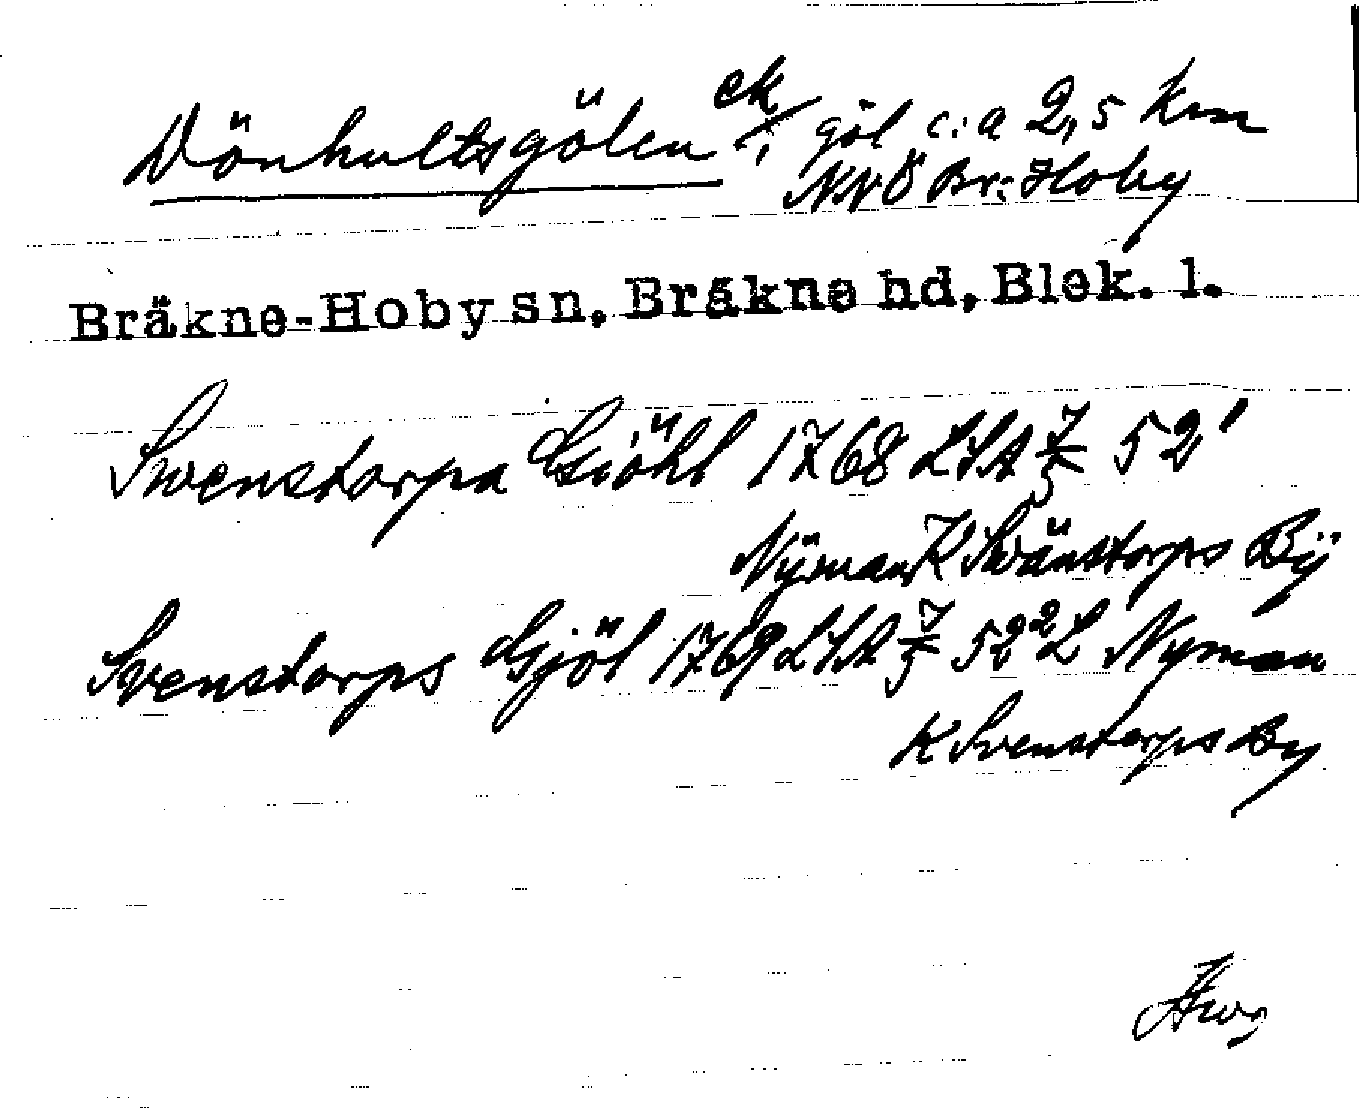 Dönhultsgölen ek göl c:a 2,5 km
NNÖ Br:Hoby
Bräkne-Hoby sn, Bräkne hd, Blek. l.
Swenstorpa Giöhl 1768 LSA 52¹
Nÿman K Swänstorps Bÿ
Svenstorps Gjöl 1769 LSA 52² L Nyman
K Svenstorps By